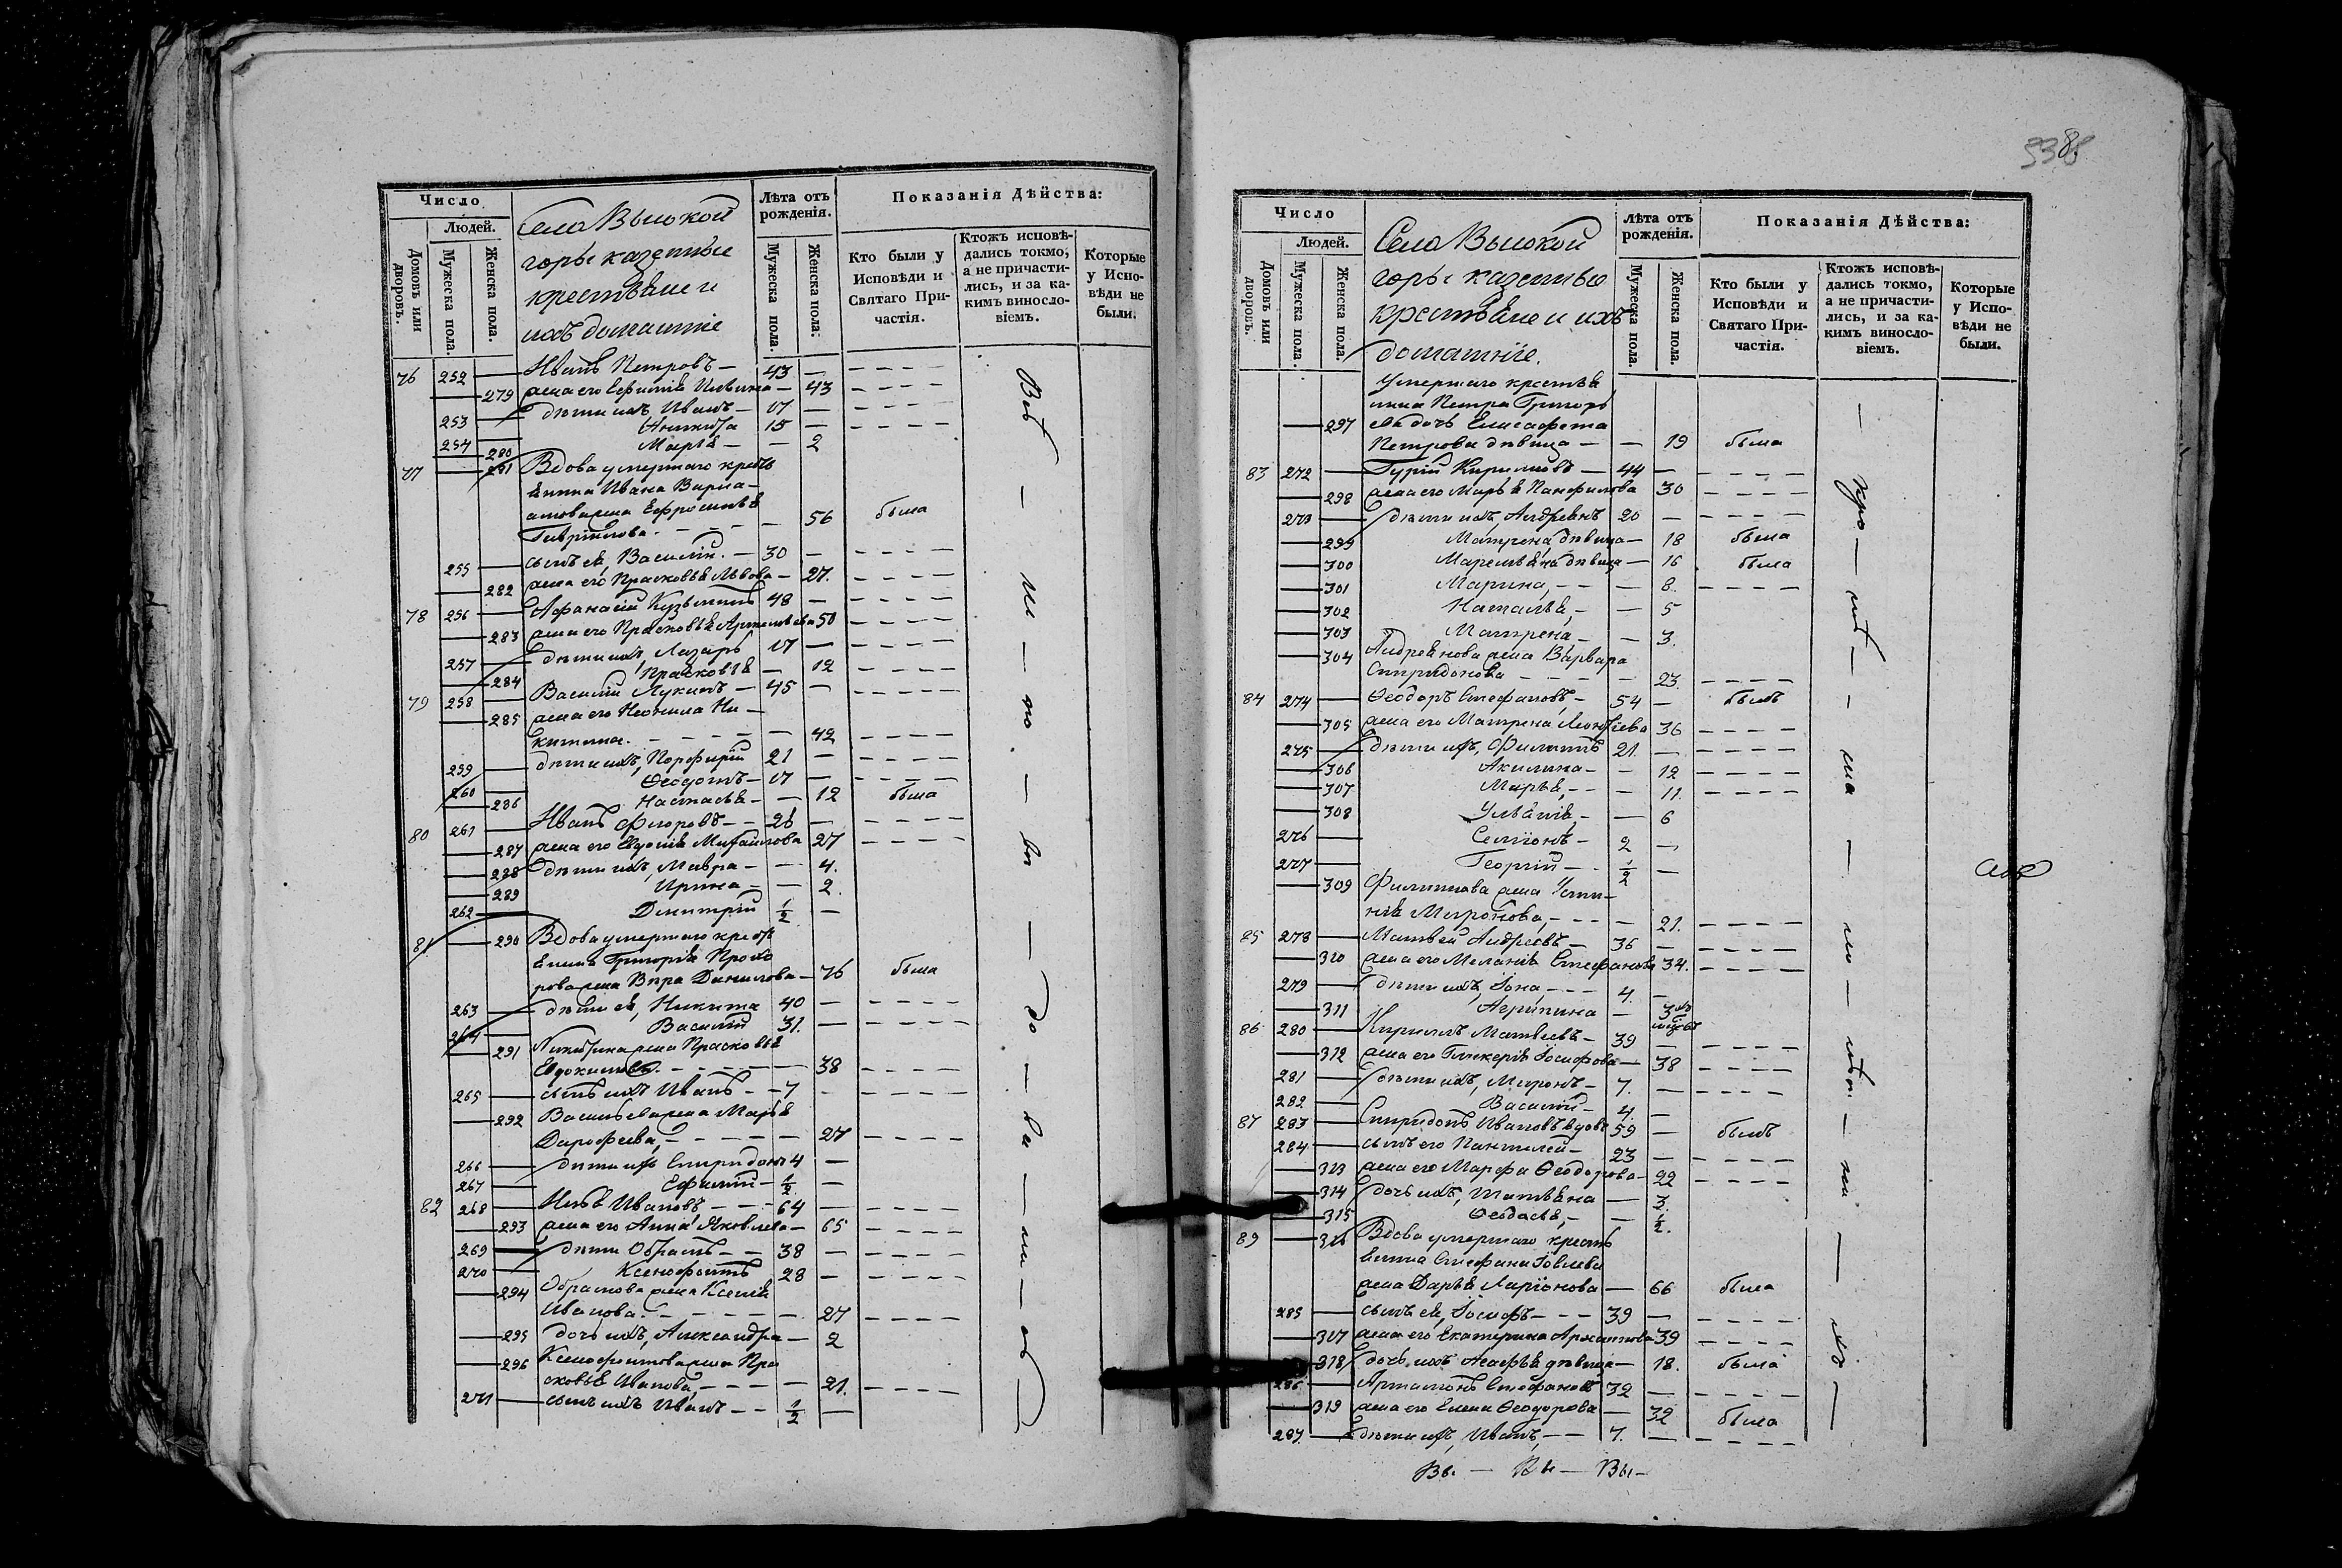 Число
Людей.
Домовъ или дворовъ.
Мужеска пола.
Женска пола.
Села Высокой
горы казенные
крестьяне и
ихъ домашніе
Лѣта отъ рожденія.
Мужеска пола.
Женска пола.
Показанія Дѣйства:
Кто были у Исповѣди и Святаго Причастія.
Ктожъ исповѣдались токмо, а не причастились, и за какимъ винословіемъ.
Которые у Исповѣди не были.
76 252 Иванъ Петровъ — 43 —
279 жена его Ефимія Ильина — 43
253 дѣти ихъ, Иванъ — 17 —
254 Аникита 15 —
280 Марія — — 2
77 281 Вдова умершаго кресть
янина Ивана Варла-
амова жена Ефросинья
Гаврилова — 56 была
255 сынъ ея, Василій — 30 —
282 жена его Прасковья Львова — 27.
78 256 Афанасій Кузьминъ 48 —
283 жена его Прасковья Артемьева 50
257 дѣти ихъ, Лазарь 17 —
284 Прасковья — 12
79 258 Василій Лукинъ — 45 —
285 жена его Неонила Ни-
китина — 42
259 дѣти ихъ, Порфирій 21 —
260 Ѳеодотъ — 17 —
286 Настасья — — 12 была
80 261 Иванъ Егоровъ — 26 —
287 жена его Евдокія Михайлова 27
288 дѣти ихъ, Мавра — — 4.
289 Ирина — — 2.
262 Димитрій 1/2 —
81 290 Вдова умершаго крест
янина Григорія Прохо
рова жена Вѣра Данилова — 76 была
263 дѣти ея, Никита 40 —
264 Василій 31. —
291 Никитина жена Прасковья
Евдокимова — 38
265 сынъ ихъ Иванъ — 7 —
292 Васильева жена Марья
Дорофеева, — 27
266 дѣти ихъ Спиридонъ 4 —
267 Ефимій — 1/2 —
82 268 Илья Ивановъ — 64 —
293 жена его Анна Яковлева — 65
269 дѣти Образъ — 38 —
270 Ксенофонтъ 28 —
294 Образцова жена Ксенія
Иванова — 27
295 дочь ихъ, Александра — 2
296 Ксенофонтова жена Пра
сковья Иванова, — 21.
271 сынъ ихъ Иванъ — 1/2 —
338
Число
Людей.
Домовъ или дворовъ.
Мужеска пола
Женска пола.
Села Высокой
горы казенные
крестьяне и ихъ
домашніе.
Лѣта отъ рожденія.
Мужеска пола.
Женска пола.
Показанія Дѣйства:
Кто были у Исповѣди и Святаго Причастія.
Ктожъ исповѣдались токмо, а не причастились, и за какимъ винословіемъ.
Которые у Исповѣди не были.
Умершаго крестья
нина Петра Григорь
297 ева дочь Елисавета
Петрова дѣвица — — 19 была
83 272 Гурій Кириловъ — 44 —
298 жена его Марья Панфилова 30
273 дѣти ихъ, Андреянъ 20 —
299 Матрена, дѣвица — 18 была
300 Маремьяна дѣвица — 16 была
301 Марина, — 8.
302 Наталья, — 5
303 Матрена — — 3.
304 Андреянова жена Варвара
Спиридонова — 23.
84 274 Ѳеодоръ Стефановъ — 54 — былъ
305 жена его Матрена Леонтьева 36
275 дѣти ихъ, Филиппъ 21. —
306 Акилина — — 12
307 Марья, — — 11.
308 Ульянія, — — 6
276 Симіонъ — 2 —
277 Георгій — 1/2 —
309 Филиппова жена Усти-
нія Миронова, — 21.
85 278 Матвей Андреевъ — 36 —
310 жена его Меланія Стефанова 34.
279 дѣти ихъ, Іона, — 4. —
311 Агрипина — 3
86 280 Кириллъ Матвеевъ — 39 —
312 жена его Гликерія Іосифова — 38
281 дѣти ихъ, Миронъ — 7. —
282 Василій — 4. —
87 283 Спиридонъ Ивановъ вдовъ 59 — былъ
284 сынъ его Пантилей — 23 —
313 жена его Марфа Ѳеодорова — 22
314 дочь ихъ, Татьяна — 3.
315 Ѳеодосья, — — 1/2.
89 316 Вдова умершаго кресть
янина Стефана Іовлева
жена Дарья Ларіонова — 66 была
285 сынъ ея, Іосифъ — 39 —
317 жена его Екатерина Архиппова 39
318 дочь ихъ Агафья дѣвица — 18. была
286 Артамонъ Стефановъ 32 —
319 жена его Елена Ѳеодорова — 32 была
287. дѣти ихъ, Иванъ, — 7. —
Вы — Вы — Вы —